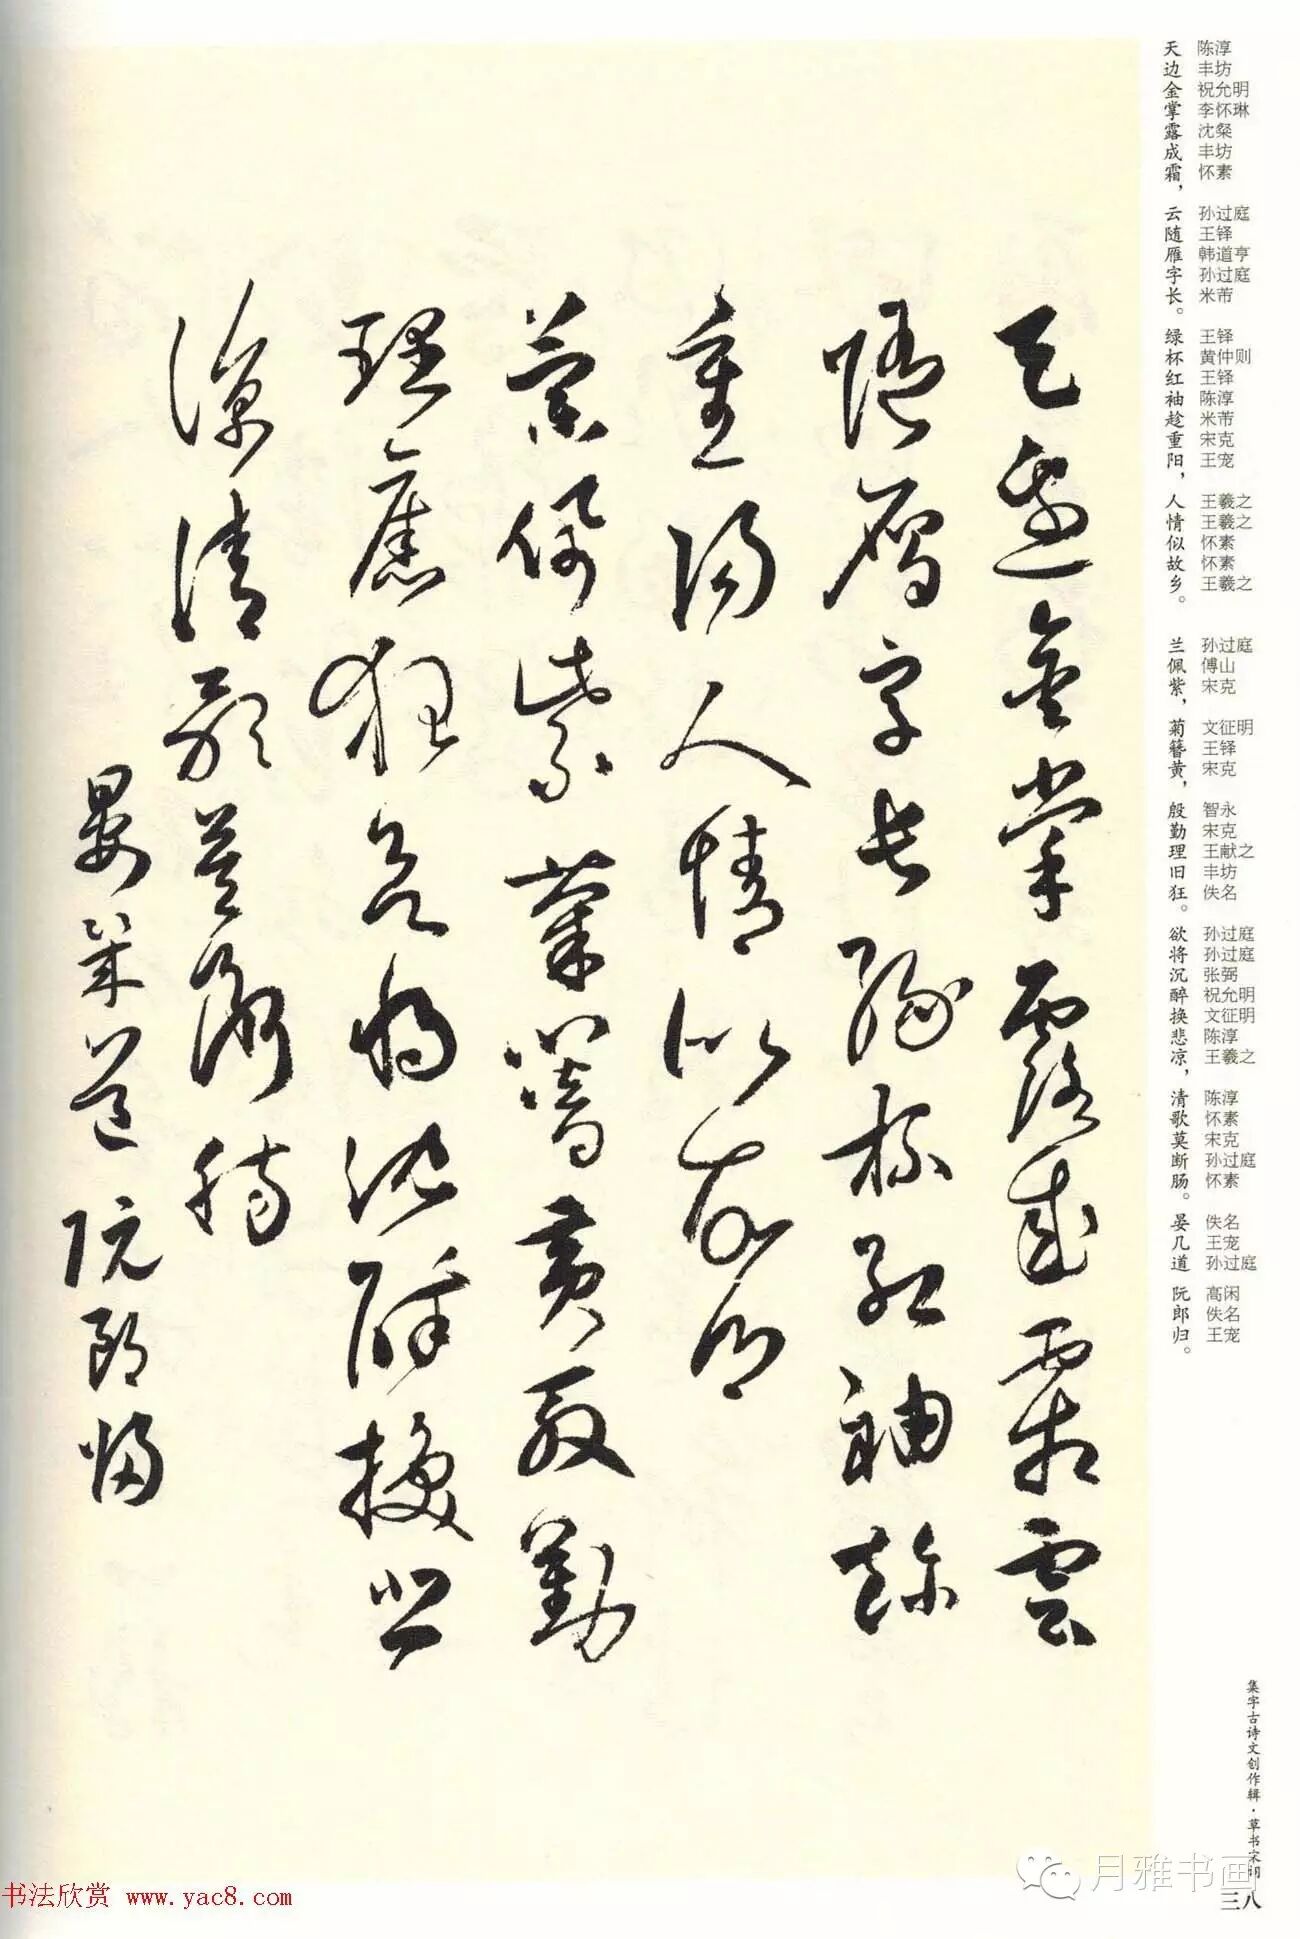 天边金掌露成霜，云随雁字长。绿杯红袖趁重阳，人情似故乡。兰佩紫，菊簪黄，殷勤理旧狂。欲将沉醉换悲凉，清歌莫断肠。晏几道 阮郎归。
陈淳 丰坊 祝允明 李怀琳 沈粲 丰坊 怀素 孙过庭 王铎 韩道亨 孙过庭 米芾 王铎 黄仲则 王铎 陈淳 米芾 宋克 王宠 王羲之 王羲之 怀素 怀素 王羲之 孙过庭 傅山 宋克 文征明 王铎 宋克 智永 宋克 王献之 丰坊 佚名 孙过庭 孙过庭 张弼 祝允明 文征明 陈淳 王羲之 陈淳 怀素 宋克 孙过庭 怀素 佚名 王宠 孙过庭 高闲 佚名 王宠
天边金掌露成霜云
随雁字长绿杯红袖趁
重阳人情似故乡
兰佩紫菊簪黄殷勤
理旧狂欲将沈醉换悲
凉清歌莫断肠
晏几道阮郎归
集字古诗文创作辑·草书宋词
三八
月雅书画
书法欣赏 www.yac8.com